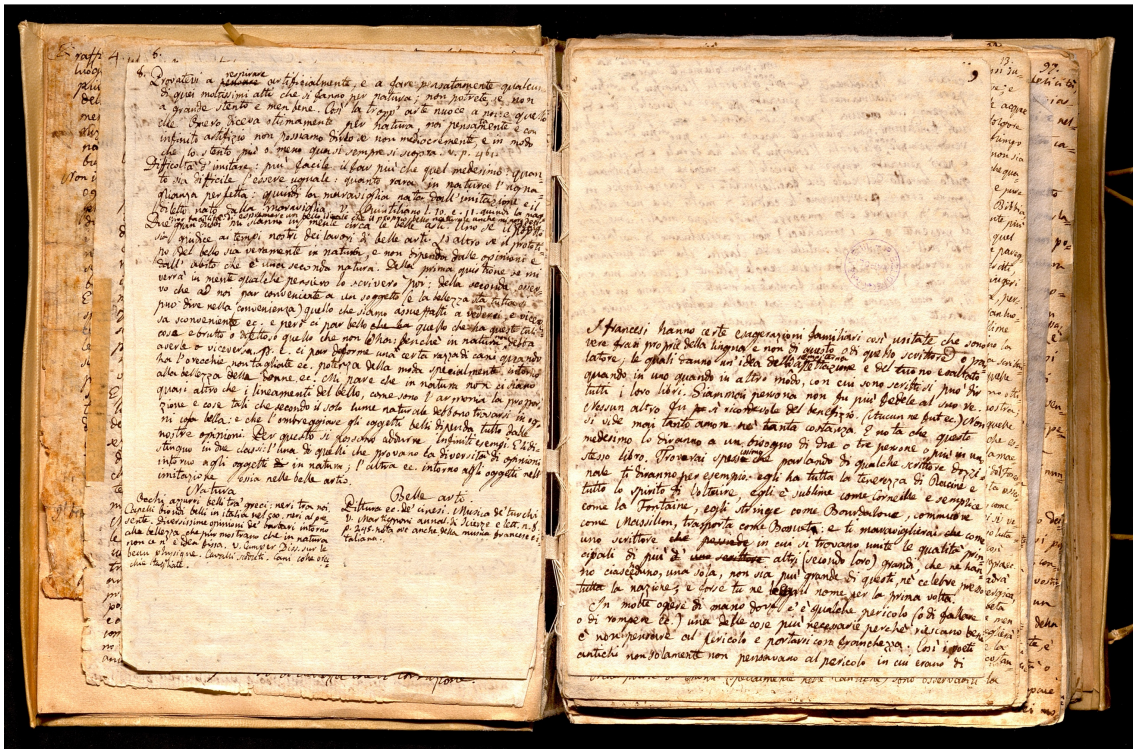 6.
8.
Provatevi a respirare artificialmente, e a fare pensatamente qualcuno
di quei moltissimi atti che si fanno per natura; non potrete, se non
a grande stento e men bene. Così la tropp' arte nuoce a noi: e quello
che Omero diceva ottimamente per natura, noi pensatamente e con
infinito artifizio non possiamo dirlo se non mediocremente, e in modo
che lo stento più o meno quasi sempre si scopra. v. p. 461.
Difficoltà d'imitare: più facile il far più che quel medesimo: quan
to sia difficile l'essere uguale: quanto rara in natura l'ugua
glianza perfetta: quindi la maraviglia nata dall'imitazione e il
diletto nato dalla maraviglia. v. Quintiliano l. 10. c. 11. quindi la
Due gran dubbi mi stanno in mente circa le belle arti. Uno se il popolo
sia giudice ai tempi nostri dei lavori di belle arti. L'altro se il prototi
po del bello sia veramente in natura, e non dipenda dalle opinioni e
dall' abito che è una seconda natura. Della prima quistione se mi
verrà in mente qualche pensiero lo scriverò poi: della seconda osser
vo che ad noi par conveniente a un soggetto (e la bellezza sta tutta si
può dire nella convenienza) quello che siamo assuefatti a vederci, e vicever
sa sconveniente ec. e però ci par bello quello che ha queste tali
cose e brutto o difettoso quello che non le ha; benchè in natura debba
averle o viceversa. p. e. ci par deforme una certa razza di cani quando
ha l'orecchie non tagliate ec. potenza della moda specialmente intorno
alla bellezza delle donne, ec. Mi pare che in natura non ci siano
quasi altro che i lineamenti del bello, come sono l'armonia la propor
zione e cose tali che secondo il solo lume naturale debbono trovarsi in og
ni cosa bella: e che l'ombreggiare gli oggetti belli dipenda tutto dalle
nostre opinioni. Per questo si possono addurre infiniti esempi. E li di
stinguo in due classi: l'una di quelli che provano la diversità di opinioni
intorno agli oggetti in natura; l'altra ec. intorno agli oggetti nell'
imitazione ossia nelle belle arti.
Natura
Occhi azzurri belli tra' greci; neri tra noi.
Capelli biondi belli in italia nel 500, neri al pre
sente. Diversissime opinioni de' barbari intorno
alla bellezza, che pur mostrano che in natura
non ce n'è idea fissa. v. Camper Diss. sur le
beau physique. Cavalli scodati. Cani colle orec
chie tagliate.
Belle arti.
Pittura ec. de' cinesi. Musica de' turchi
v. Martignoni annal. di Scienze e lett. n. 8.
p. 245. nota ove anche della musica francese e i
taliana.
9
I francesi hanno certe esagerazioni familiari così usitate che sono
vere frasi proprie della lingua e non di questo o di quello scrittore o par
latore; le quali danno un'idea dell'affettazione e del tuono esaltato
quando in uno quando in altro modo, con cui sono scritti si può dir
tutti i loro libri. Giammai persona non fu più fedele al suo re.
Nessun altro fu più ricordevole del benefizio. (Aucun ne fut ec.) Non
si vide mai tanto amore nè tanta costanza. E nota che questo
medesimo lo diranno a un bisogno di due o tre persone o più in uno
stesso libro. Troverai spessissimo che parlando di qualche scrittore dozzi
nale ti diranno per esempio: egli ha tutta la tenerezza di Racine e
tutto lo spirito di Voltaire, egli è sublime come Corneille e semplice
come la Fontaine, egli stringe come Bourdaloue, commuove
come Massillon, trasporta come Bossuet: e ti maraviglierai che
uno scrittore in cui si trovano unite le qualità prin
cipali di più altri (secondo loro) grandi, che ne han
no ciascheduno, una sola, non sia più grande di questi nè celebre presso
tutta la nazione, e forse tu ne leggi il nome per la prima volta.
In molte opere di mano dov' è qualche pericolo (o di fallare
o di rompere ec.) una delle cose più necessarie perchè riescano bene
è non pensare al pericolo e portarsi con franchezza. Così i poeti
antichi non solamente non pensavano al pericolo in cui erano di
13.
97.